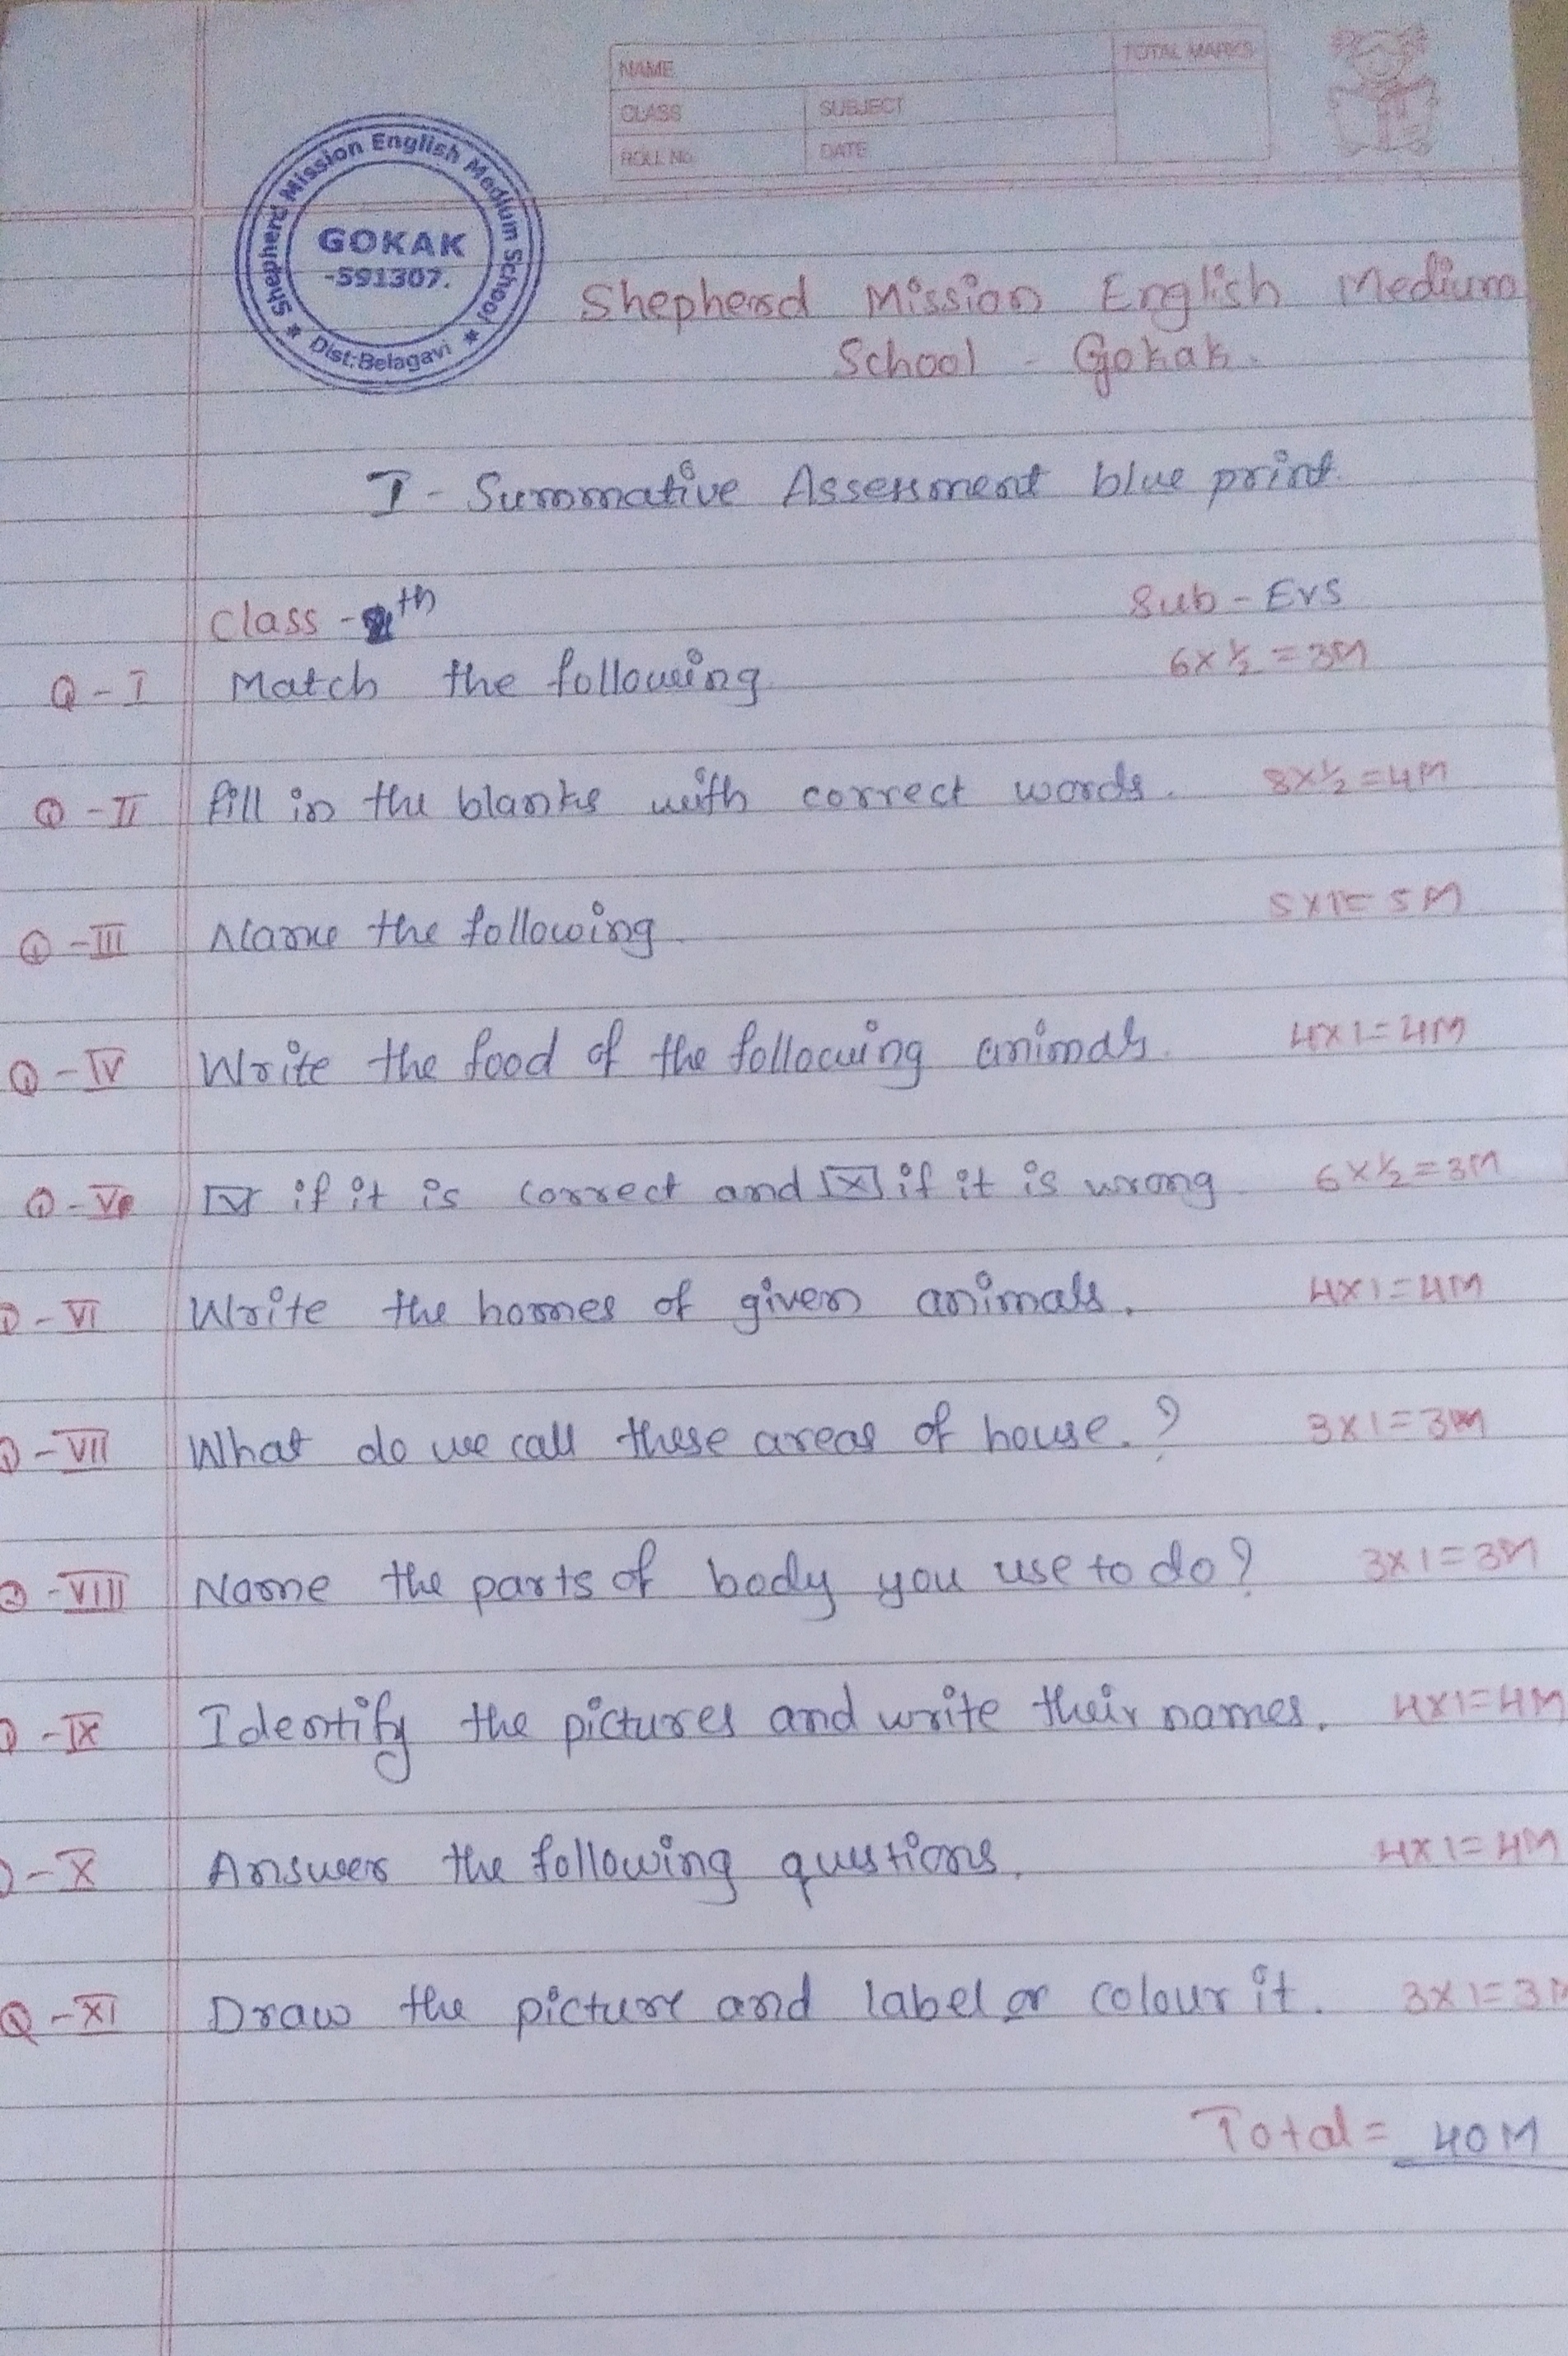 NAME
TOTAL MARKS
CLASS
SUBJECT
ROLL No.
DATE
Shepherd Mission English Medium School
GOKAK
-591307.
Dist:Belagavi
Shepherd Mission English Medium
School - Gokak.
I - Summative Assessment blue print.
Class - 2th
Sub - EVS
Q - I Match the following 6 x ½ = 3M
Q - II fill in the blanks with correct words. 8 x ½ = 4M
Q - III Name the following 5 x 1 = 5M
Q - IV Write the food of the following animals. 4 x 1 = 4M
Q - V [✓] if it is correct and [x] if it is wrong 6 x ½ = 3M
Q - VI Write the homes of given animals. 4 x 1 = 4M
Q - VII What do we call these areas of house.? 3 x 1 = 3M
Q - VIII Name the parts of body you use to do? 3 x 1 = 3M
Q - IX Identify the pictures and write their names. 4 x 1 = 4M
Q - X Answer the following questions. 4 x 1 = 4M
Q - XI Draw the picture and label or colour it. 3 x 1 = 3M
Total = 40M